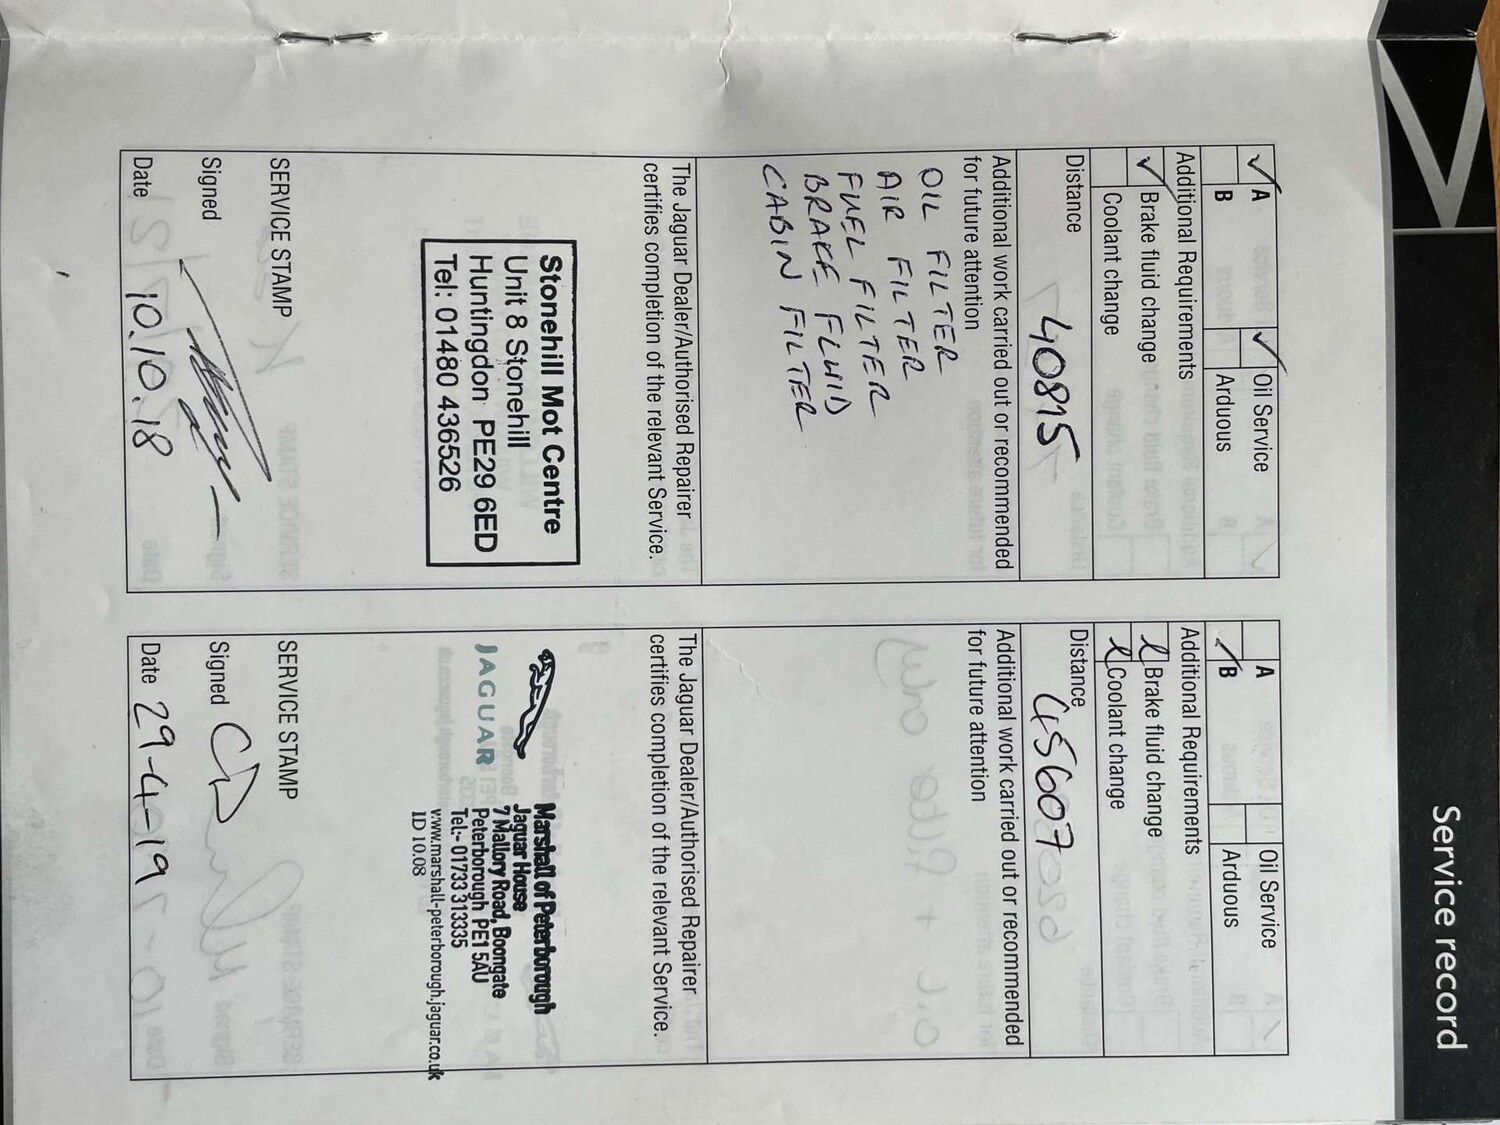 Service record
✓ A ✓ Oil Service
B Arduous
Additional Requirements
✓ Brake fluid change
Coolant change
Distance 40815
Additional work carried out or recommended
for future attention
OIL FILTER
AIR FILTER
FUEL FILTER
BRAKE FLUID
CABIN FILTER
The Jaguar Dealer/Authorised Repairer
certifies completion of the relevant Service.
Stonehill Mot Centre
Unit 8 Stonehill
Huntingdon PE29 6ED
Tel: 01480 436526
SERVICE STAMP
Signed
Date 10.10.18
A Oil Service
✓ B Arduous
Additional Requirements
Brake fluid change
Coolant change
Distance 45607
Additional work carried out or recommended
for future attention
The Jaguar Dealer/Authorised Repairer
certifies completion of the relevant Service.
JAGUAR
Marshall of Peterborough
Jaguar House
7 Mallory Road, Boongate
Peterborough PE1 5AU
Tel:- 01733 313335
www.marshall-peterborough.jaguar.co.uk
ID 10.08
SERVICE STAMP
Signed
Date 29-4-19